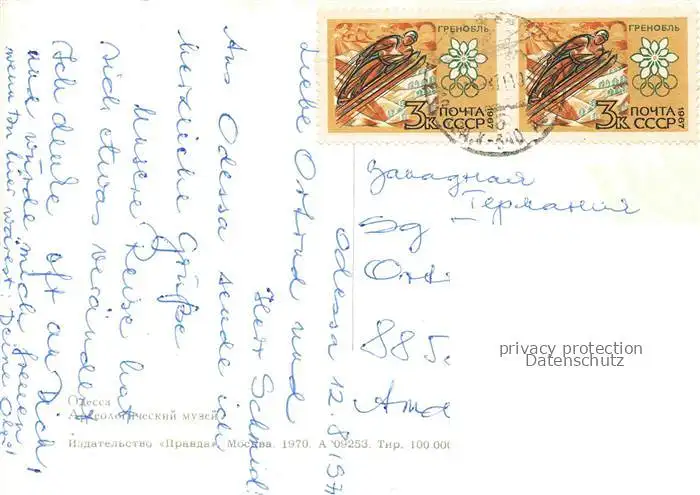 Odessa 12.8.197
Liebe Ortrud und
Herr Schmid!
Aus Odessa sende ich
herzliche Grüße
Unsere Reise hat
sich etwas verändert
Ich denke oft an Dich!
und würde mich freuen,
wenn Du hier wärest! Deine Olga
ГРЕНОБЛЬ
3К ПОЧТА
СССР 1967
ГРЕНОБЛЬ
3К ПОЧТА
СССР 1967
Западная
Германия
Ort
885
Ama
privacy protection
Datenschutz
Одесса
Археологический музей
Издательство «Правда». Москва. 1970. А 09253. Тир. 100 000